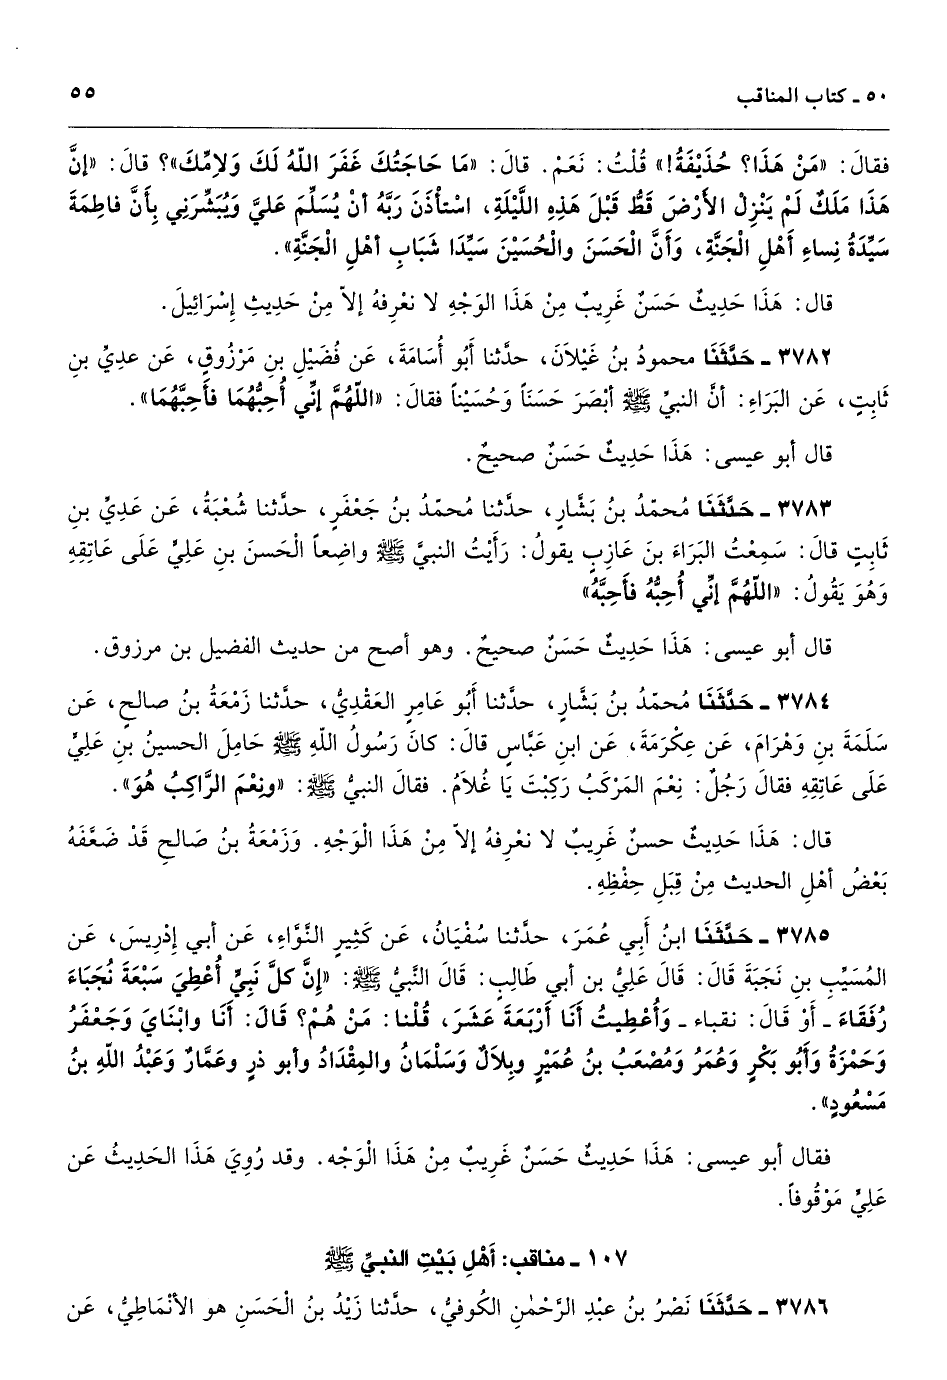 ٥٠ ـ كتاب المناقب ٥٥
فقالَ: «مَنْ هَذَا؟ حُذَيْفَةُ!» قُلْتُ: نَعَمْ. قالَ: «مَا حَاجَتُكَ غَفَرَ اللّهُ لَكَ وَلِامِّكَ»؟ قالَ: «إنَّ
هَذَا مَلَكٌ لَمْ يَنْزِلْ الأَرْضَ قَطُّ قَبْلَ هَذِهِ اللَّيْلَةِ، اسْتأْذَنَ رَبَّهُ أنْ يُسَلِّمَ عَليَّ وَيُبَشِّرَنِي بِأَنَّ فاطِمَةَ
سَيِّدَةُ نِساءِ أَهْلِ الْجَنَّةِ، وَأَنَّ الْحَسَنَ والْحُسَيْنَ سَيِّدَا شَبَابِ أهْلِ الْجَنَّةِ».
قال: هَذَا حَدِيثٌ حَسَنٌ غَرِيبٌ مِنْ هَذَا الوَجْهِ لا نعْرِفهُ إلاّ مِنْ حَدِيثِ إِسْرَائِيلَ.
٣٧٨٢ ـ حَدَّثَنَا محمودُ بنُ غَيْلاَنَ، حدَّثنا أبُو أُسَامَةَ، عَن فُضَيْلِ بنِ مَرْزُوقٍ، عَن عدِيِّ بنِ
ثَابِتٍ، عَن البَرَاءِ: أنَّ النبيَّ ﷺ أبْصَرَ حَسَنَاً وَحُسَيْناً فقالَ: «اللَّهُمَّ إنِّي أُحِبُّهُمَا فأَحِبَّهُمَا».
قال أبو عيسى: هَذَا حَدِيثٌ حَسَنٌ صحيحٌ.
٣٧٨٣ ـ حَدَّثَنَا مُحمّدُ بنُ بَشَّارٍ، حدَّثنا مُحمّدُ بنُ جَعْفَرٍ، حدَّثنا شُعْبَةُ، عَن عَدِيِّ بنِ
ثَابِتٍ قالَ: سَمِعْتُ البَرَاءَ بنَ عَازِبٍ يقولُ: رَأَيْتُ النبيَّ ﷺ واضِعاً الْحَسنَ بنِ عَلِيٍّ عَلَى عَاتِقِهِ
وَهُوَ يَقُولُ: «اللّهُمَّ إنِّي أُحِبُّهُ فأَحِبَّهُ»
قال أبو عيسى: هَذَا حَدِيثٌ حَسَنٌ صحيحٌ. وهو أصح من حديث الفضيل بن مرزوق.
٣٧٨٤ ـ حَدَّثَنَا مُحمّدُ بنُ بَشَّارٍ، حدَّثنا أَبُو عَامِرٍ العَقْدِيُّ، حدَّثنا زَمْعَةُ بنُ صالحٍ، عَن
سَلَمَةَ بنِ وَهْرَامَ، عَن عِكْرَمَةَ، عَن ابنِ عَبَّاسٍ قالَ: كانَ رَسُولُ اللّهِ ﷺ حَامِلَ الحسينُ بنِ عَلِيٍّ
عَلَى عَاتِقِهِ فقالَ رَجُلٌ: نِعْمَ المَرْكَبُ رَكِبْتَ يَا غُلاَمُ. فقالَ النبيُّ ﷺ: «ونِعْمَ الرَّاكِبُ هُوَ».
قال: هَذَا حَدِيثٌ حسنٌ غَرِيبٌ لا نعْرِفهُ إلاّ مِنْ هَذَا الْوَجْهِ. وَزَمْعَةُ بنُ صَالحٍ قَدْ ضَعَّفَهُ
بَعْضُ أهْلِ الحديث مِنْ قِبَلِ حِفْظِهِ.
٣٧٨٥ ـ حَدَّثَنَا ابنُ أَبِي عُمَرَ، حدَّثنا سُفْيَانُ، عَن كَثِيرٍ النَّوَّاءِ، عَن أبي إدْرِيسَ، عَن
المُسَيِّبِ بنِ نَجَبَةَ قَالَ: قَالَ عَلِيُّ بن أبي طَالِبٍ: قَالَ النَّبيُّ ﷺ: «إنَّ كلَّ نَبِيٍّ أُعْطِيَ سَبْعَةَ نُجَبَاءَ
رُفَقَاءَ ـ أَوْ قَالَ: نقباء ـ وَأُعْطِيتُ أنَا أرْبَعَةَ عَشَرَ، قُلْنا: مَنْ هُمْ؟ قَالَ: أنَا وابْنَايَ وَجَعْفَرُ
وَحَمْزَةُ وَأَبُو بَكْرٍ وَعُمَرُ وَمُصْعَبُ بنُ عُمَيْرٍ وبِلاَلٌ وَسَلْمَانُ والمِقْدَادُ وأبو ذرٍ وعَمَّارٌ وَعَبْدُ اللّهِ بنُ
مَسْعُودٍ».
فقال أبو عيسى: هَذَا حَدِيثٌ حَسَنٌ غَرِيبٌ مِنْ هَذَا الْوَجْه. وقد رُوِيَ هَذَا الحَدِيثُ عَن
عَلِيٍّ مَوْقُوفاً.
١٠٧ ـ مناقب: أَهْلِ بَيْتِ النبيِّ ﷺ
٣٧٨٦ ـ حَدَّثَنَا نَصْرُ بنُ عبْدِ الرَّحْمٰنِ الكُوفيُّ، حدَّثنا زَيْدُ بنُ الْحَسَنِ هو الأنْمَاطِيُّ، عَن